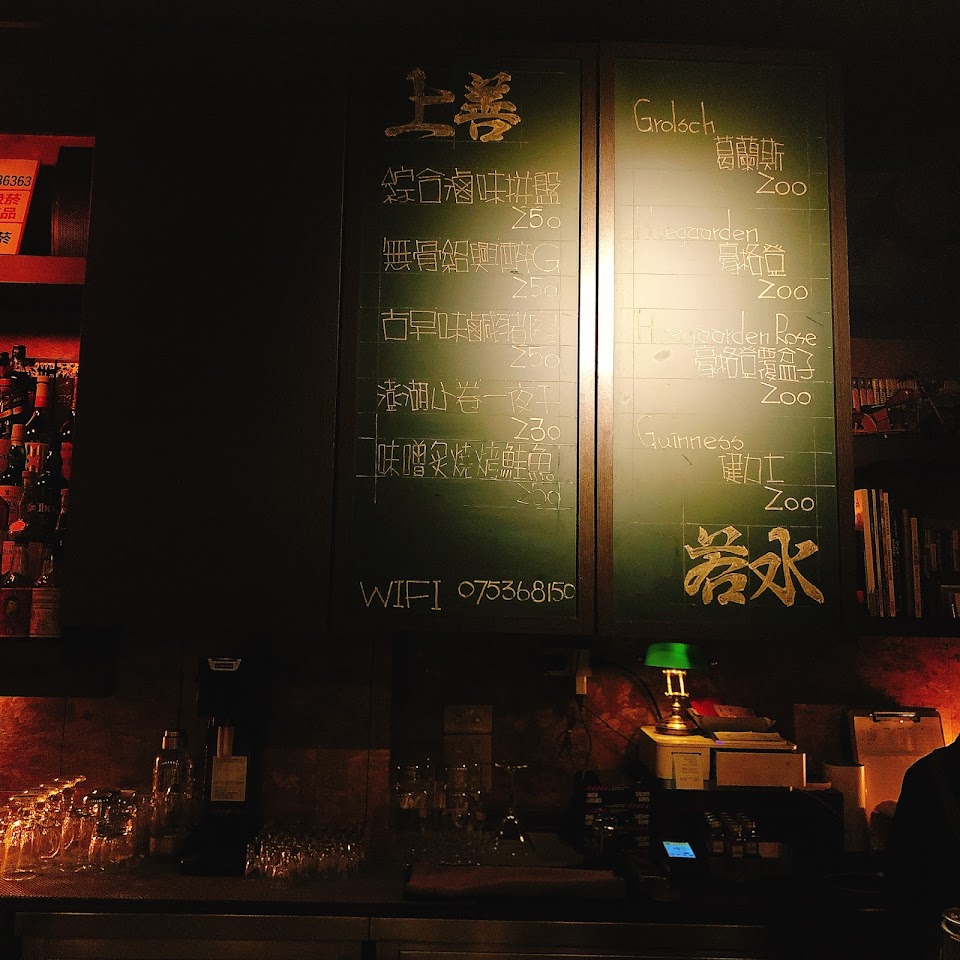 上善
綜合滷味拼盤
250
無骨紹興醉G
250
古早味鹹豬肉
250
澎湖小卷一夜干
230
味噌炙燒烤鮭魚
250
WIFI 075368150
Grolsch
葛蘭斯
200
Hoegaarden
豪格登
200
Hoegaarden Rose
豪格登覆盆子
200
Guinness
健力士
200
若水
36363